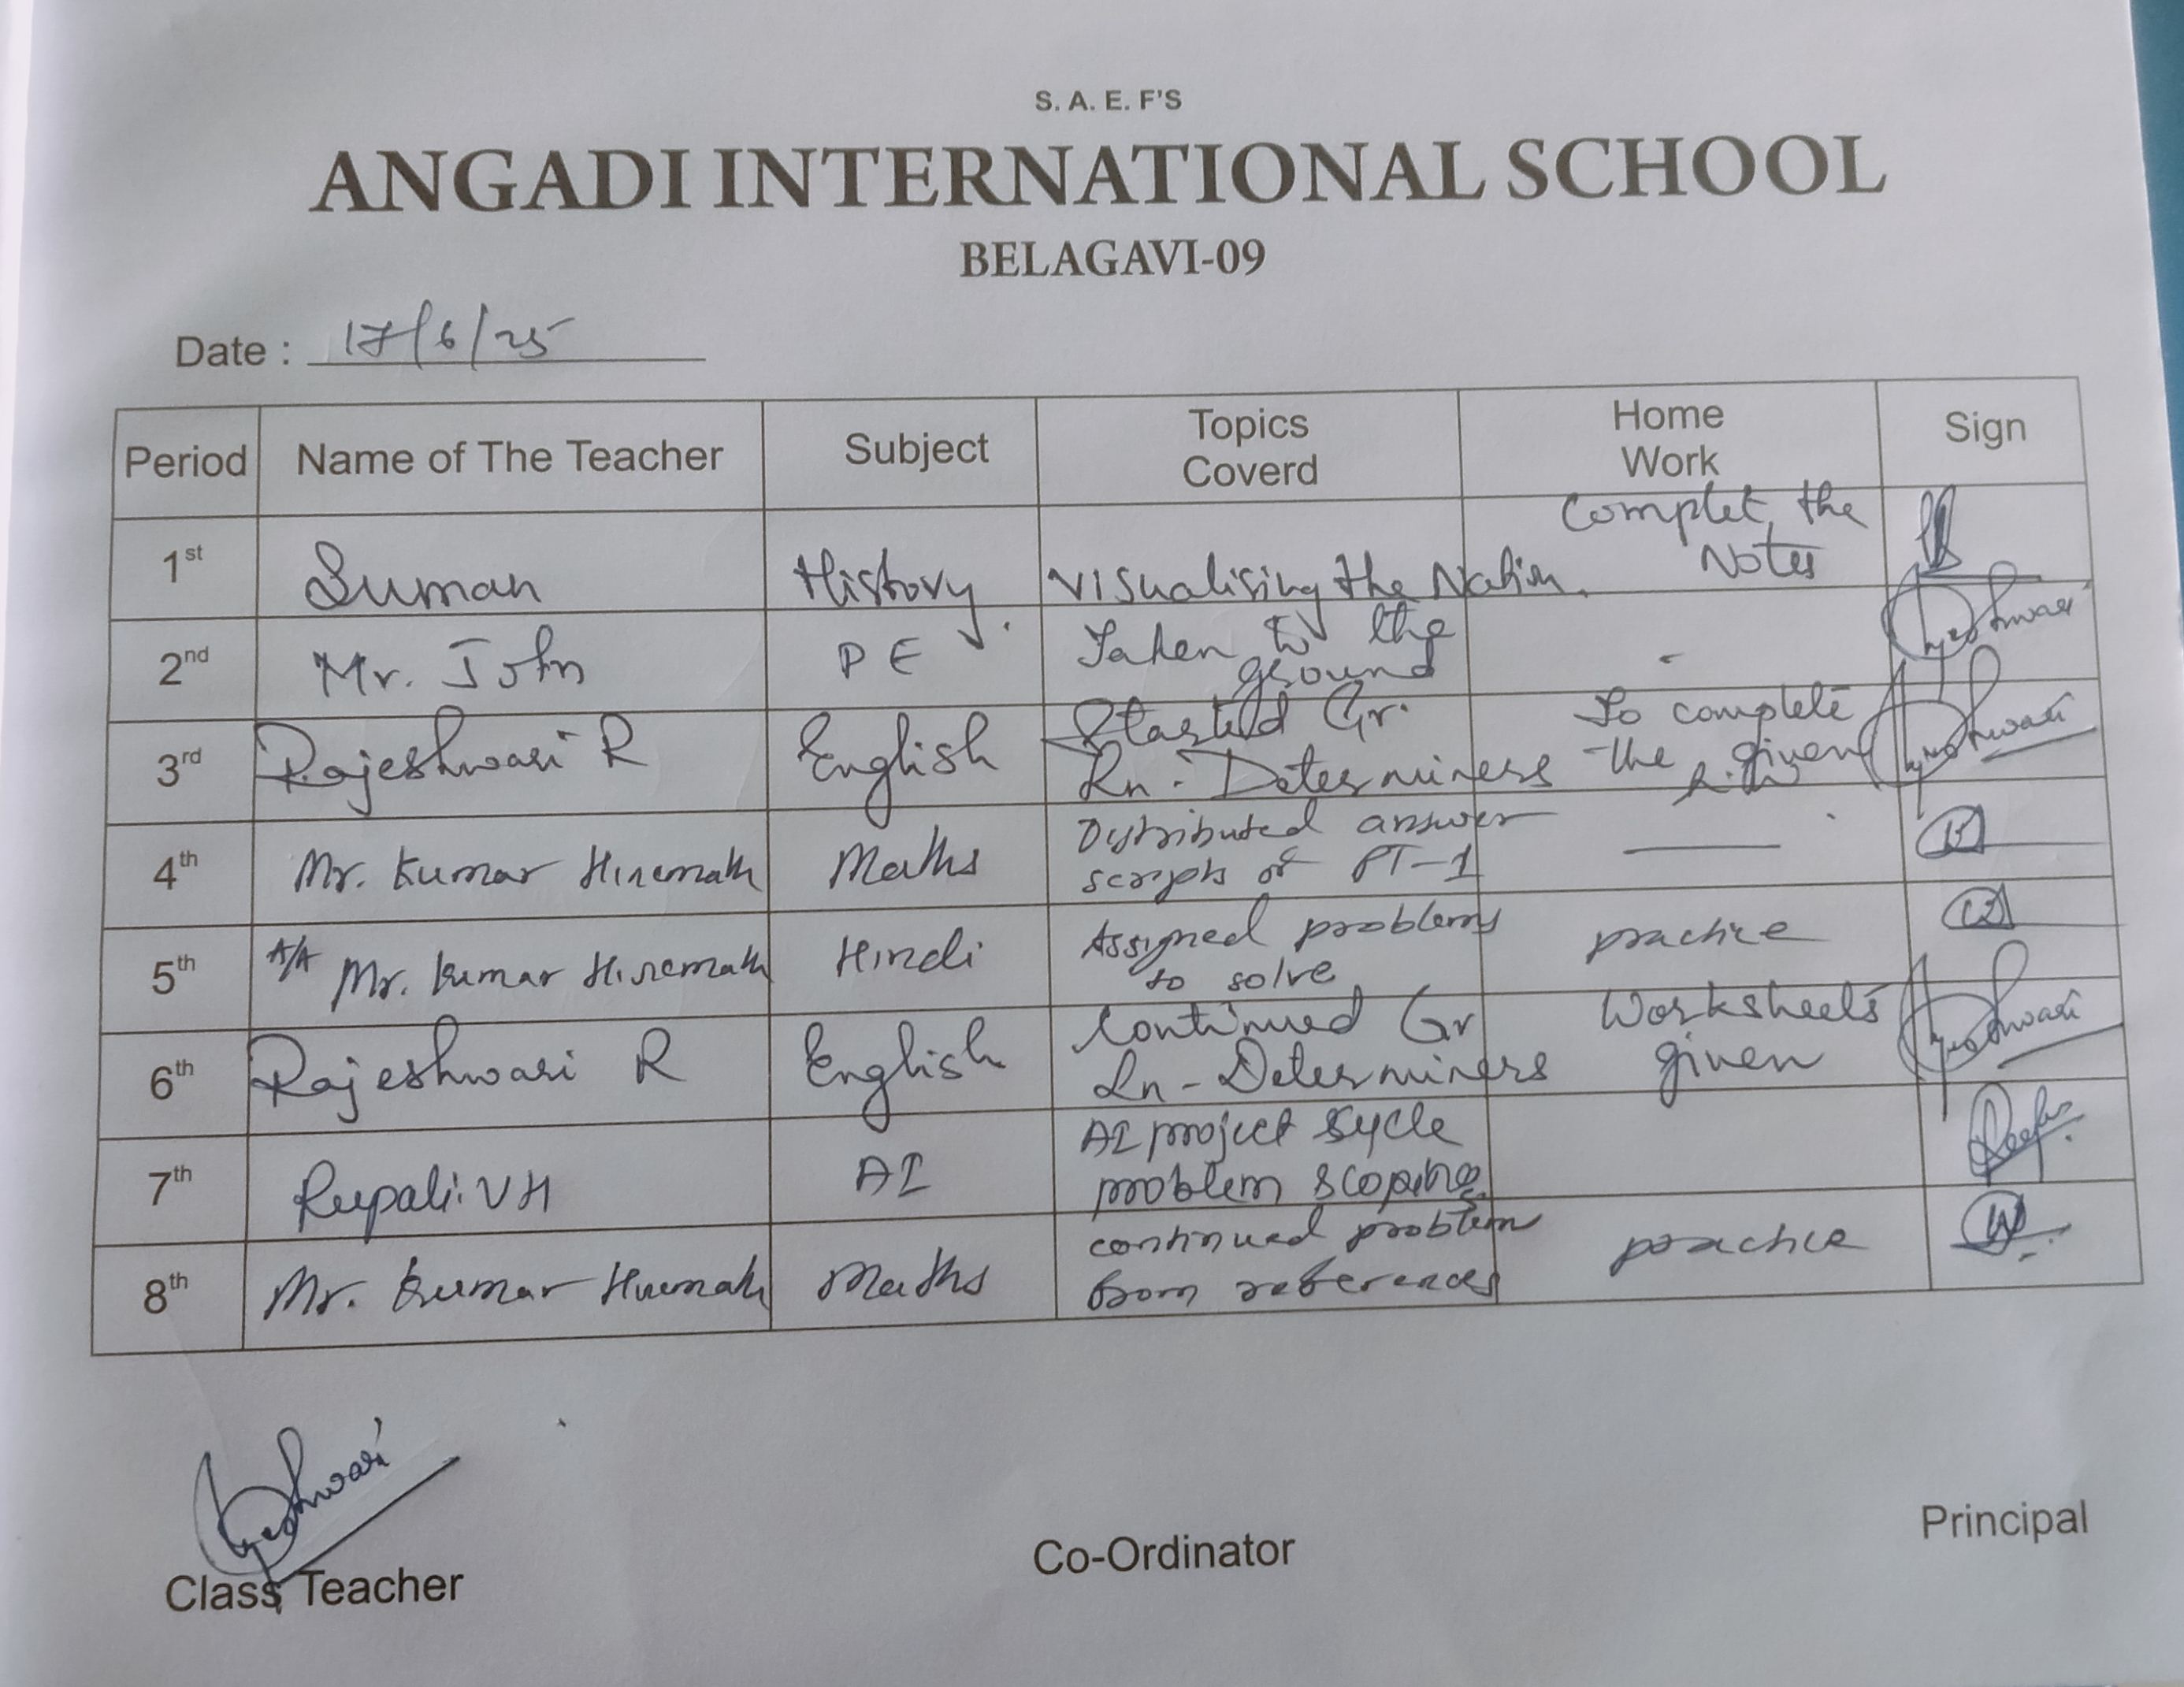 S. A. E. F'S
ANGADI INTERNATIONAL SCHOOL
BELAGAVI-09
Date : 17/6/25
Period Name of The Teacher Subject Topics Coverd Home Work Sign
1st Suman History. Visualising the Nation. Complet the Notes
2nd Mr. John PE Taken to the ground -
3rd Rajeshwari R English Started Gr. Ln - Determiners To complete the given
4th Mr. Kumar Hiremath Maths Distributed answer scripts of PT-1 —
5th A/A Mr. Kumar Hiremath Hindi Assigned problems to solve practice
6th Rajeshwari R English Continued Gr Ln - Determiners Worksheets given
7th Rupali. V H AI AI project Sycle problem scoping
8th Mr. Kumar Hiremath Maths continued problem from references practice
Class Teacher Co-Ordinator Principal